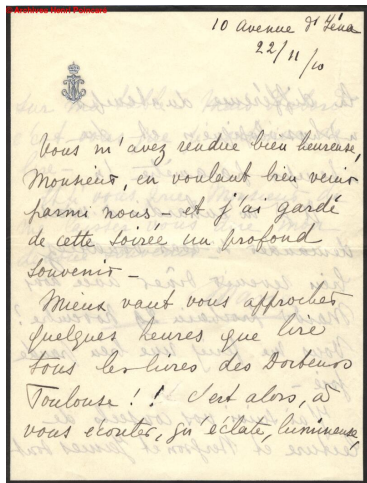 © Archives Henri Poincaré
10 Avenue d'Iéna
22/11/10
Vous m'avez rendue bien heureuse,
Monsieur, en voulant bien venir
parmi nous – et j'ai gardé
de cette soirée un profond
souvenir –
Mieux vaut vous approcher
quelques heures que lire
tous les livres des Docteurs
Toulouse !! C'est alors, à
vous écouter, qu'éclate, lumineuse,